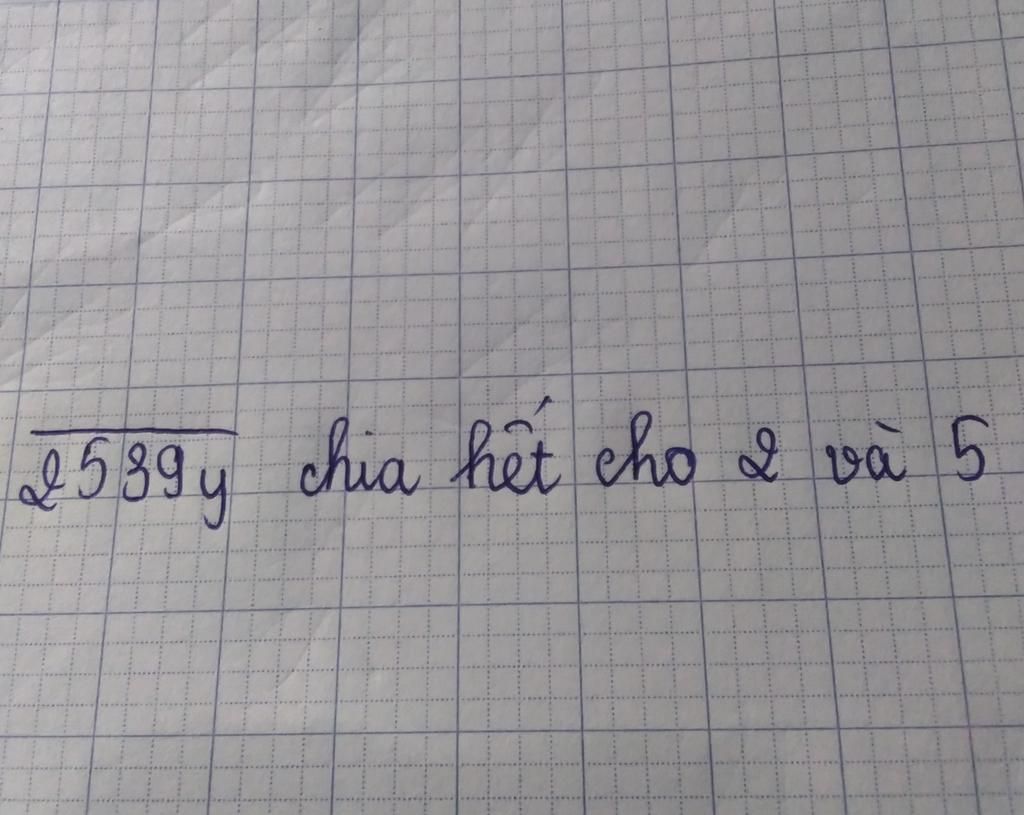 $\overline{2539y}$ chia hết cho 2 và 5